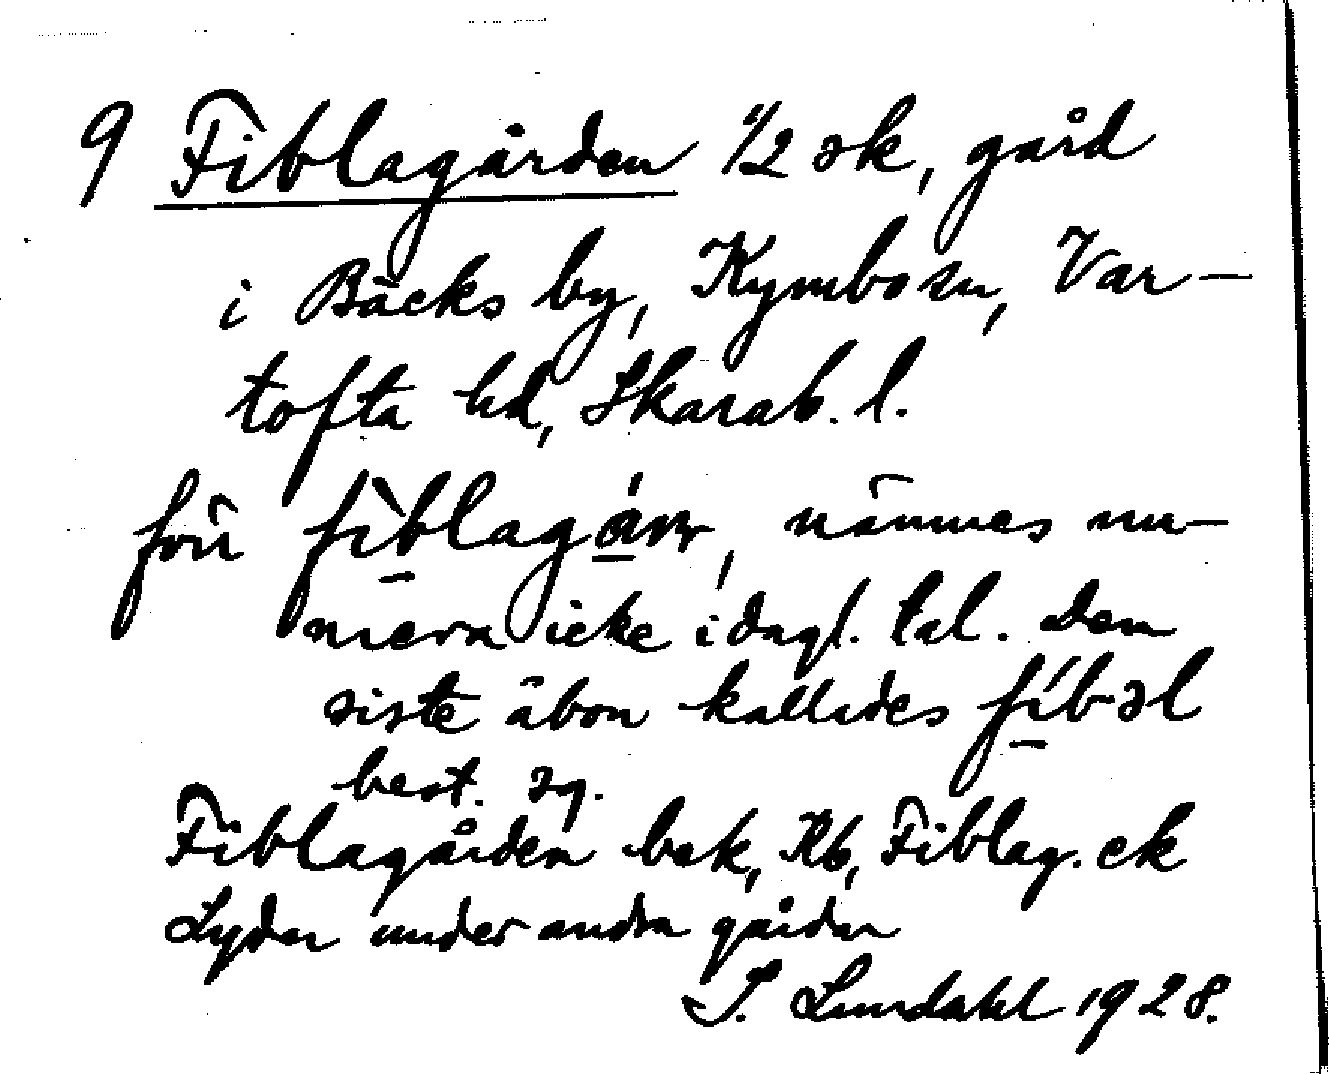 9 Fiblagården 1/2 sk, gård
i Bäcks by, Kymbo sn, Var-
tofta hd, Skarab. l.
förr fìblagárn, nämnes nu-
mera icke i dagl. tal. Den
siste åbon kallades fíbəl
best. sg.
Fiblagården bek, Kb, Fiblag. ek
Lyder under andra gårdar
I. Lundahl 1928.